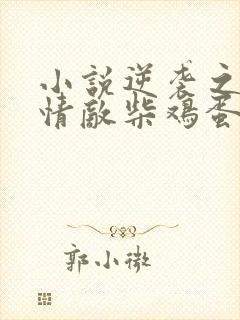 小説逆袭之
情敵柴鸡蛋
郭小微